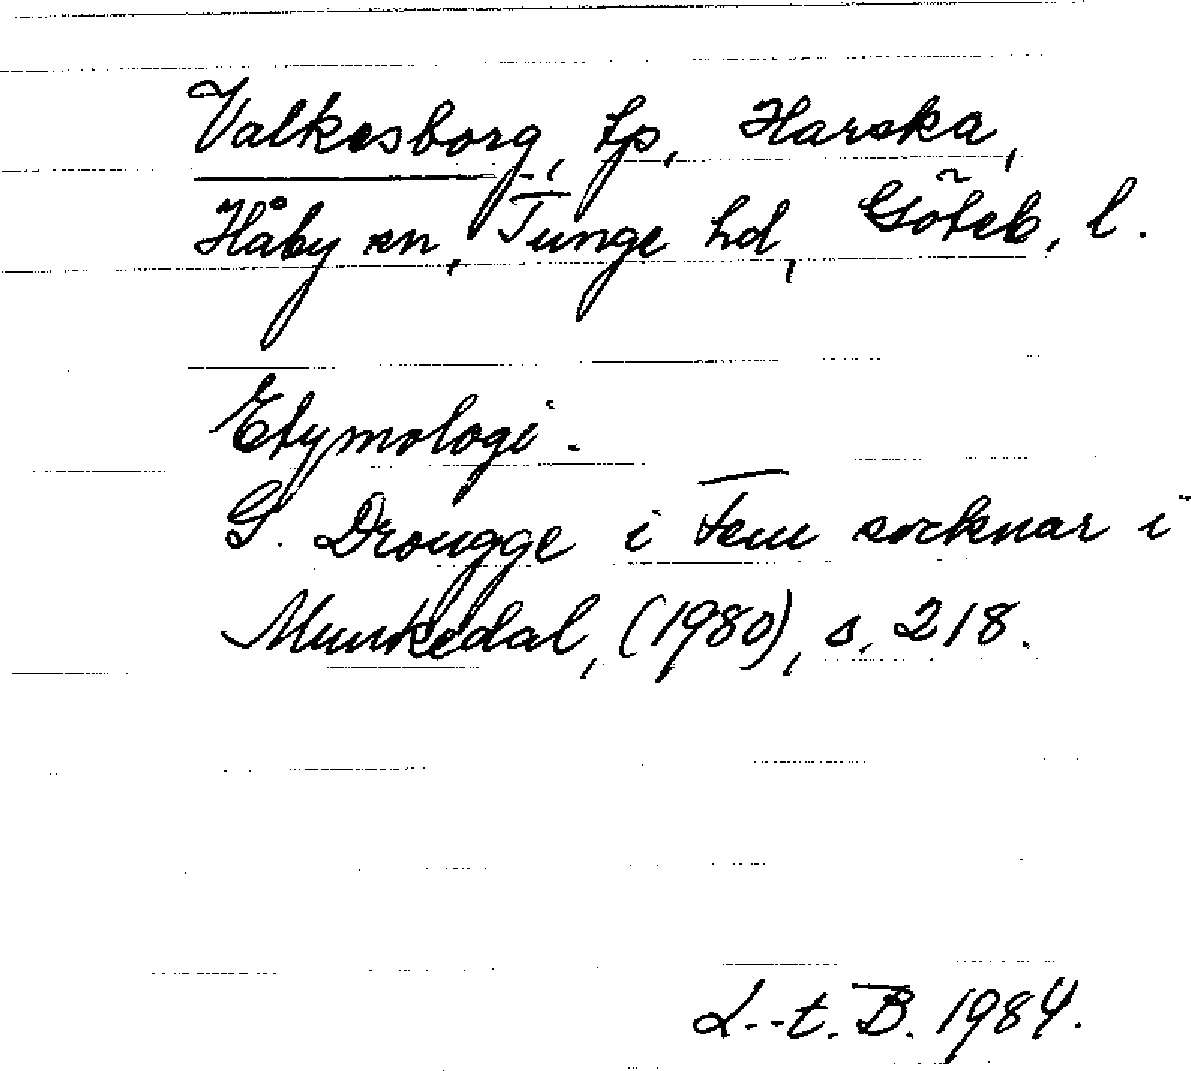 Valkesborg, tp, Harska,
Håby sn, Tunge hd, Göteb. l.
Etymologi.
G. Drougge i Fem socknar i
Munkedal, (1980), s. 218.
L.-t. B. 1984.